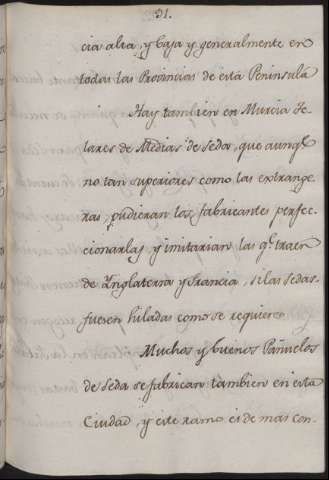 31.
cia alta, y baja y generalmente en
todas las Provincias de esta Peninsula
Hay tambien en Murcia te-
lares de Medias de seda, que aunq.e
no tan superiores como las extrange-
ras, pudieran los fabricantes perfec-
cionarlas, y imitarian las q.e traen
de Ynglaterra y francia, si las sedas
fuesen hiladas como se requiere.
Muchos y buenos Pañuelos
de seda se fabrican tambien en esta
Ciudad, y este ramo es de mas con-